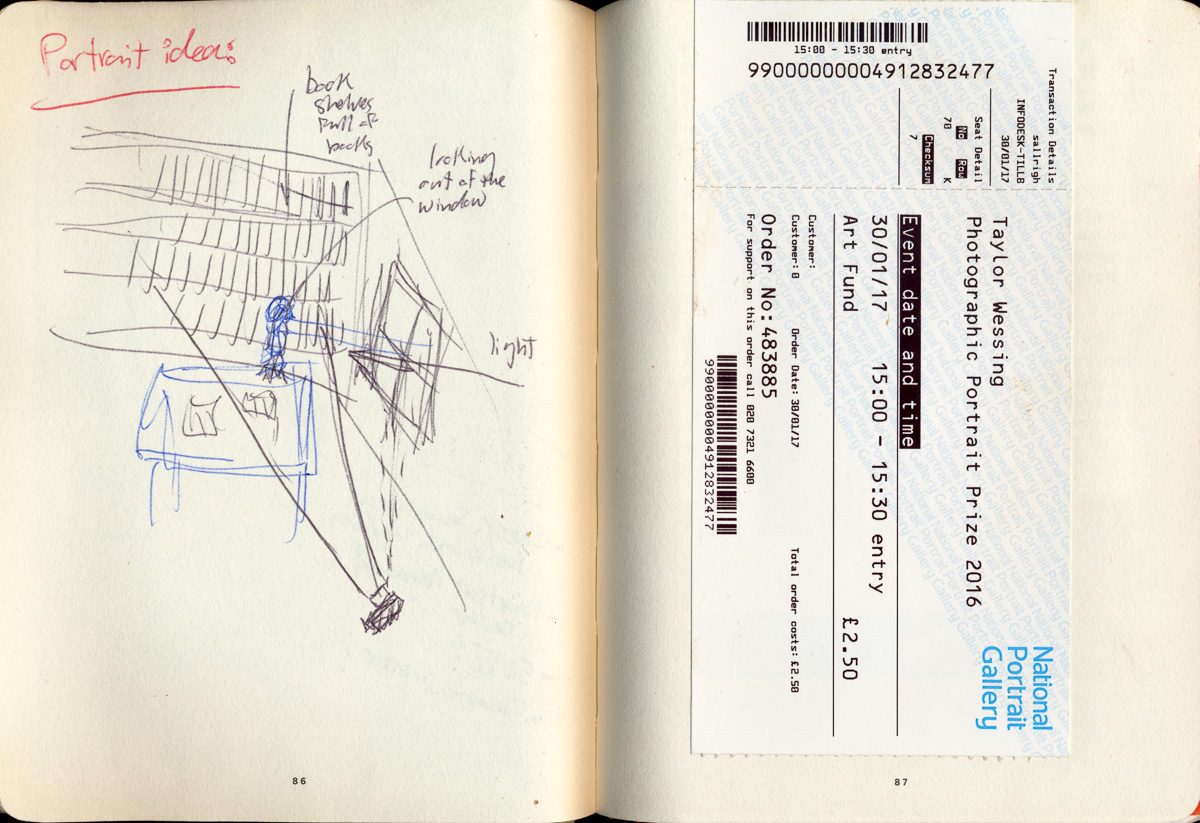 Portrait ideas
book
shelves
full of
books
looking
out of the
window
light
86
15:00 - 15:30 entry
99000000004912832477
Transaction Details
sallrigh
INFODESK-TILLB
30/01/17
Seat Detail
No Row
70 K
Checksum
7
Taylor Wessing
Photographic Portrait Prize 2016
Event date and time
30/01/17 15:00 - 15:30 entry
Art Fund £2.50
Customer:
Customer: 0 Order Date: 30/01/17 Total order costs: £2.50
Order No: 483885
For support on this order call 020 7321 6600
99000000004912832477
National
Portrait
Gallery
87